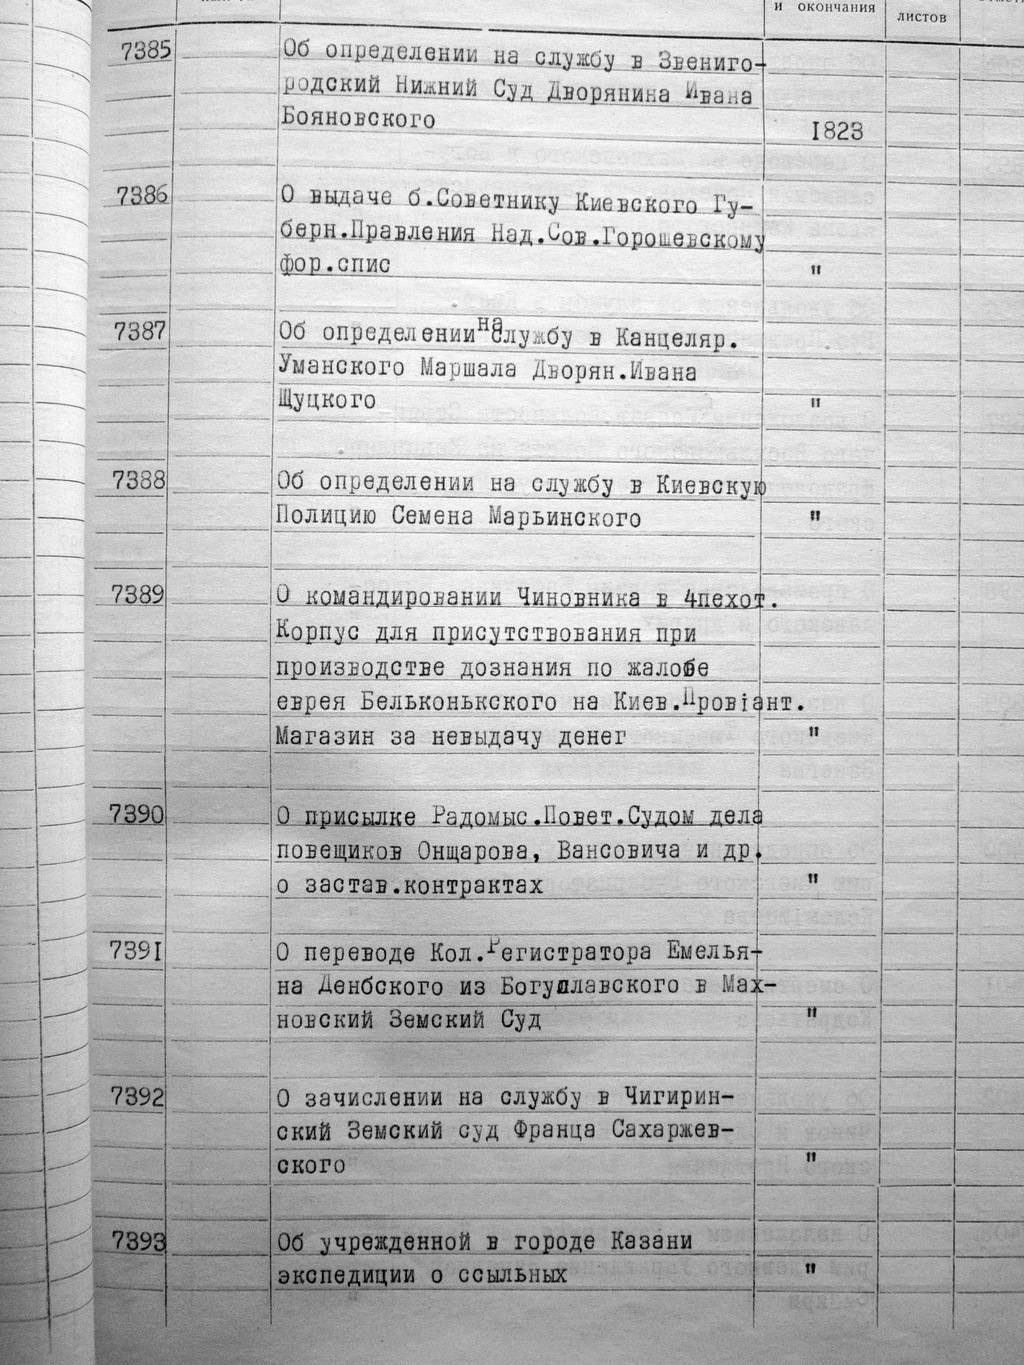 и окончания
листов
7385 Об определении на службу в Звениго-
родский Нижний Суд Дворянина Ивана
Бояновского 1823
7386 О выдаче б.Советнику Киевского Гу-
берн.Правления Над.Сов.Горошевскому
фор.спис "
7387 Об определении на службу в Канцеляр.
Уманского Маршала Дворян.Ивана
Щуцкого "
7388 Об определении на службу в Киевскую
Полицию Семена Марьинского "
7389 О командировании Чиновника в 4пехот.
Корпус для присутствования при
производстве дознания по жалобе
еврея Бельконькского на Киев.Провіант.
Магазин за невыдачу денег "
7390 О присылке Радомыс.Повет.Судом дела
повещиков Онщарова, Вансовича и др.
о застав.контрактах "
7391 О переводе Кол.Регистратора Емелья-
на Денбского из Богуславского в Мах-
новский Земский Суд "
7392 О зачислении на службу в Чигирин-
ский Земский суд Франца Сахаржев-
ского "
7393 Об учрежденной в городе Казани
экспедиции о ссыльных "